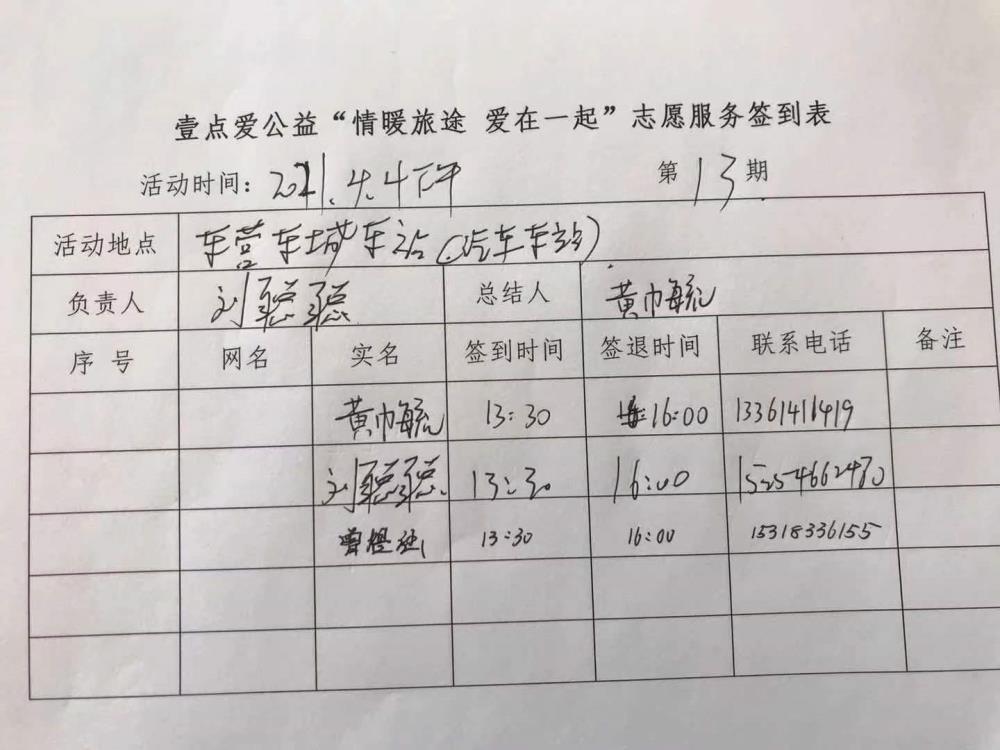 壹点爱公益“情暖旅途 爱在一起”志愿服务签到表
活动时间：2021.4.4下午 第13期
活动地点 东营东城车站(汽车车站)
负责人 刘聪聪 总结人 黄巾毓
序号 网名 实名 签到时间 签退时间 联系电话 备注
黄巾毓 13:30 16:00 13361411419
刘聪聪 13:30 16:00 15254662470
13:30 16:00 15318336155